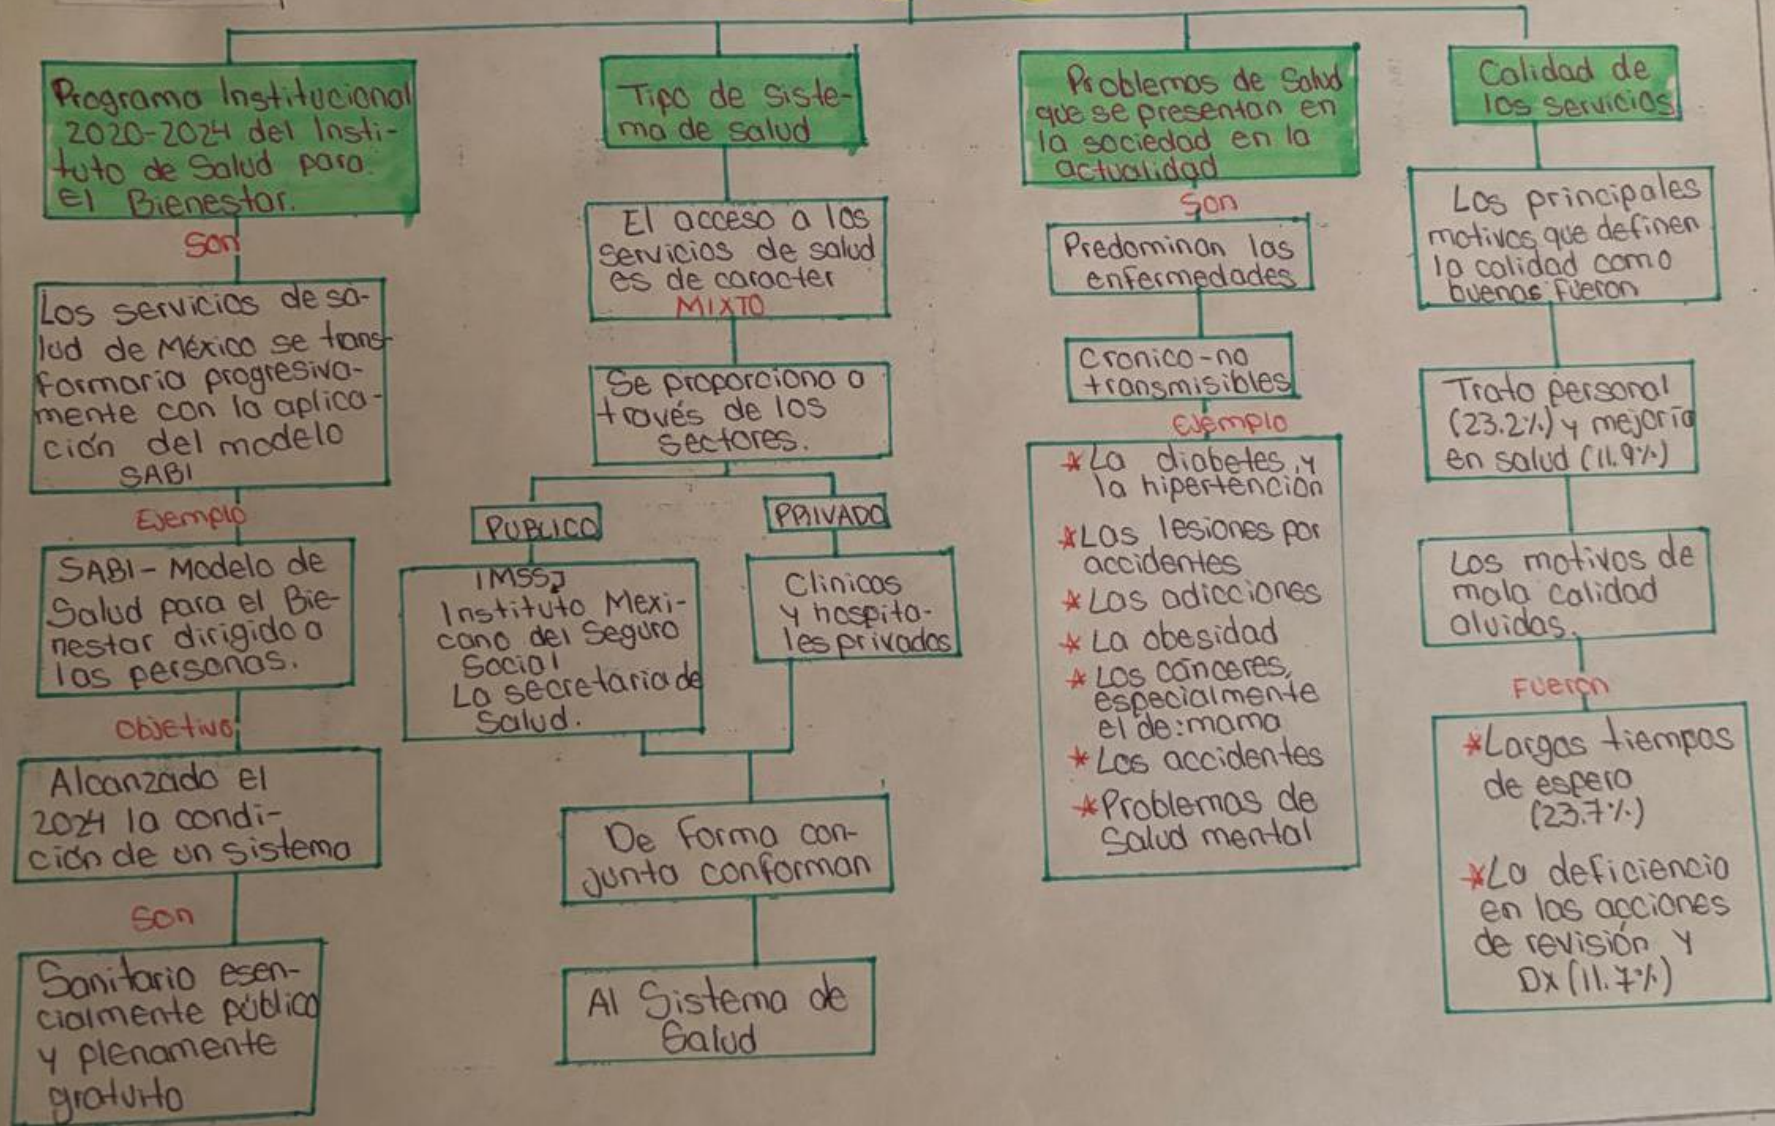 Programa Institucional
2020-2024 del Insti-
tuto de Salud para
El Bienestar.
Son
Los servicios de sa-
lud de México se trans-
formaria progresiva-
mente con la aplica-
ción del modelo
SABI
Ejemplo
SABI - Modelo de
Salud para el Bie-
nestar dirigido a
las personas.
Objetivo
Alcanzado el
2024 la condi-
ción de un sistema
Son
Sanitario esen-
cialmente público
y plenamente
gratuito
Tipo de siste-
ma de salud
El acceso a los
servicios de salud
es de caracter
MIXTO
Se proporciona a
través de los
sectores.
PUBLICO
IMSS,
Instituto Mexi-
cano del Seguro
Social
La secretaria de
Salud.
PRIVADO
Clinicas
y hospita-
les privados
De forma con-
junta conforman
Al Sistema de
Salud
Problemas de Salud
que se presentan en
la sociedad en la
actualidad
Son
Predominan las
enfermedades
Cronico-no
transmisibles
Ejemplo
*La diabetes, y
la hipertención
*Las lesiones por
accidentes
*Las adicciones
*La obesidad
*Los cánceres,
especialmente
el de: mama
*Los accidentes
*Problemas de
Salud mental
Calidad de
los servicios
Los principales
motivos que definen
la calidad como
buenas fueron
Trato personal
(23.2%) y mejoría
en salud (11.9%)
Los motivos de
mala calidad
aluidas.
Fueron
*Largos tiempos
de espera
(23.7%)
*La deficiencia
en las acciones
de revisión y
DX (11.7%)